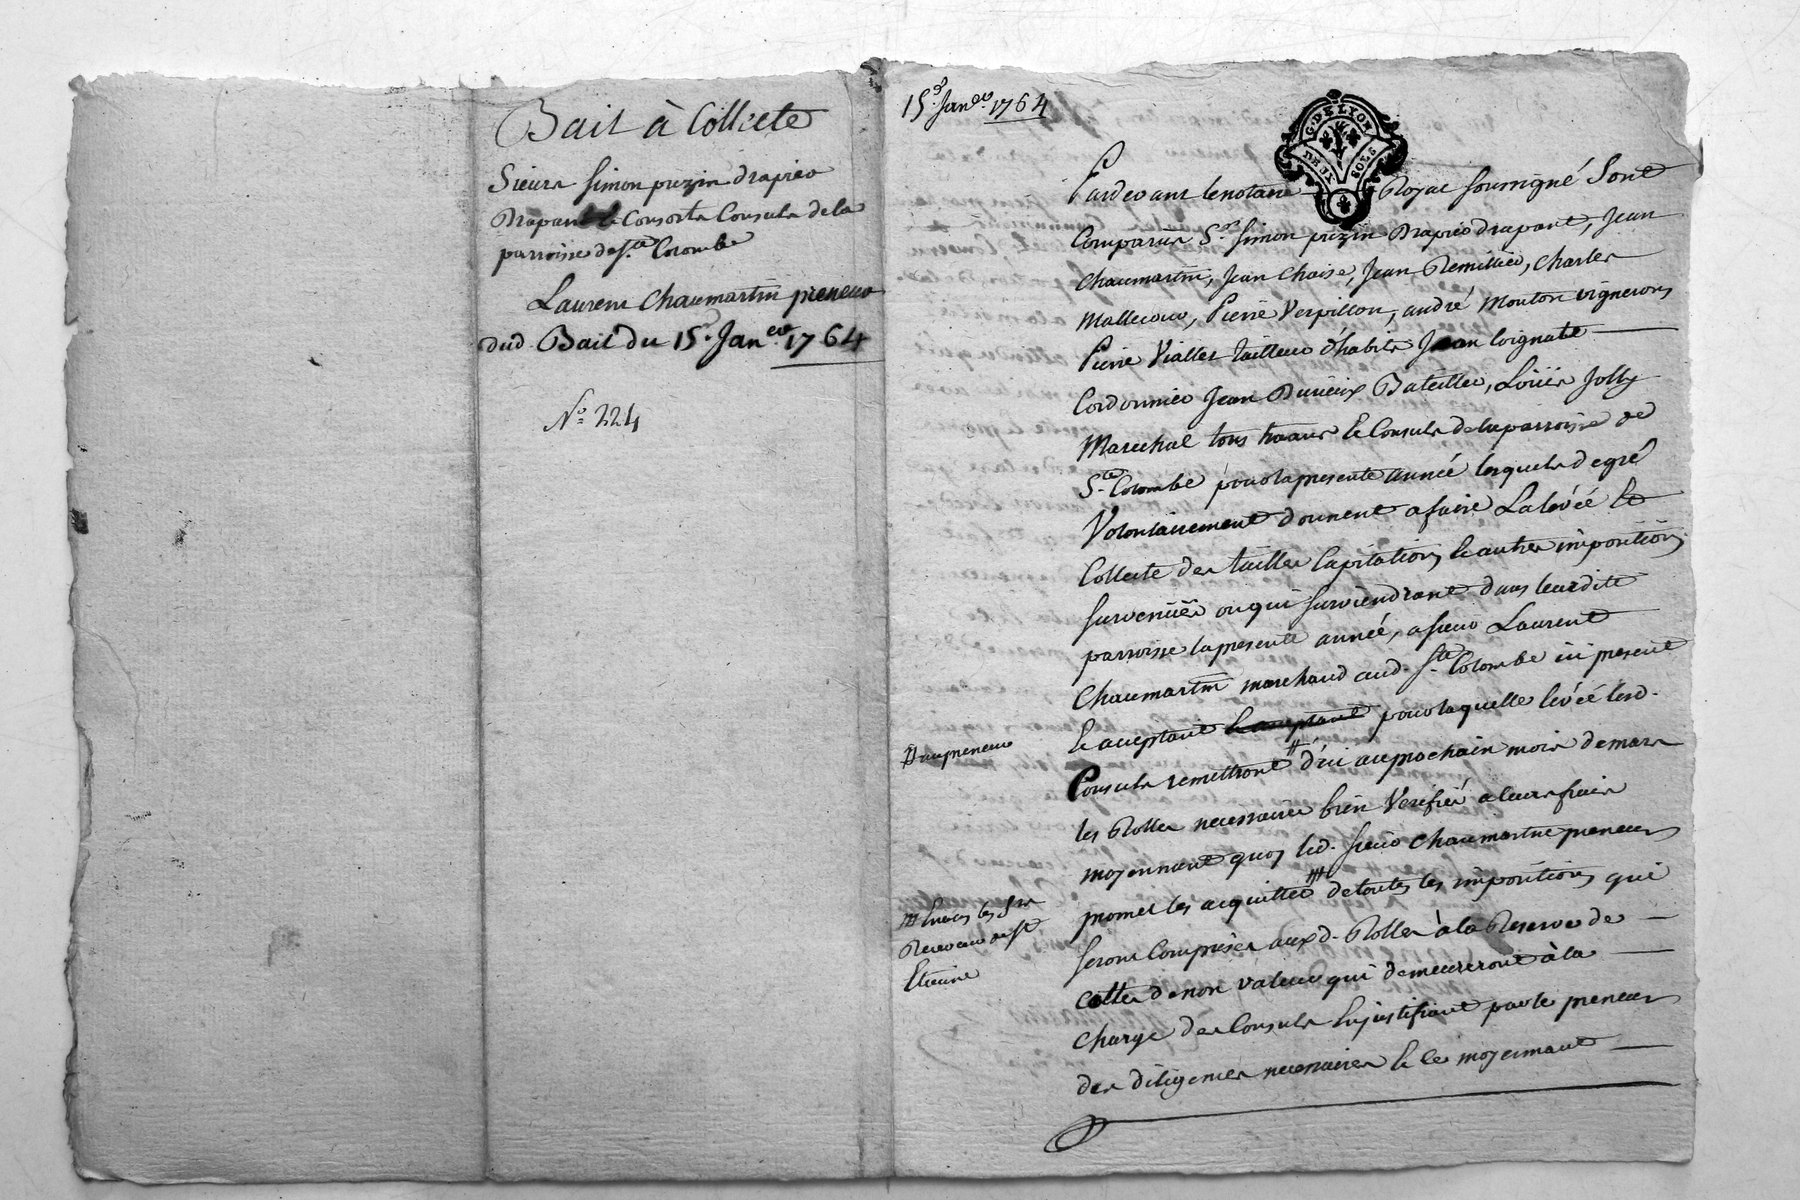 Bail à Collecte
Sieurs Simon prezin drapier
Drapant & Consorts Consuls dela
parroisse de Ste. Colombe
Laurent Chaumartin preneur
dud. Bail du 15e. Janer. 1764
No. 224
15e. Janer. 1764
G. DE LYON
DEUX SOLS
Pardevant le notaire Royal soussigné Sont
Comparus Sr. Simon prezin Drapier drapant, Jean
Chaumartin, Jean Chaise, Jean Remillier, Charles
Mallecour, Pierre Verpillon, andré Mouton vignerons
Pierre Viallet tailleur d'habits Jean Coignate
Cordonnier Jean Durieux Batellier, Loüis Jolly
Marechal tous & Consuls de la parroisse de
Ste. Colombe pour la presente année lesquels de gré
Volontairement donnent a faire La levéé Et
Collecte des tailles Capitations & autres impositions
survenües ou qui surviendront dans leurdite
parroisse la presente année, a sieur Laurent
Chaumartin marchand aud. Ste. Colombe ici present
& acceptant & acceptant pour laquelle levéé lesd.
Consuls remettront # d'ici au prochain mois de mars
# au preneur
les Rolles necessaires bien Verifié a leurs frais
moyennant quoy led. sieur Chaumartin preneur
promet les acquitter ## de toutes les impositions qui
## Envers les Srs.
Receveurs de St.
Etienne
seront Comprises auxd. Rolles à la Reserve de
cottes de non valeur qui demeureront à la
charge des Consuls En justifiant par le preneur
des diligences necessaires & ce moyennant